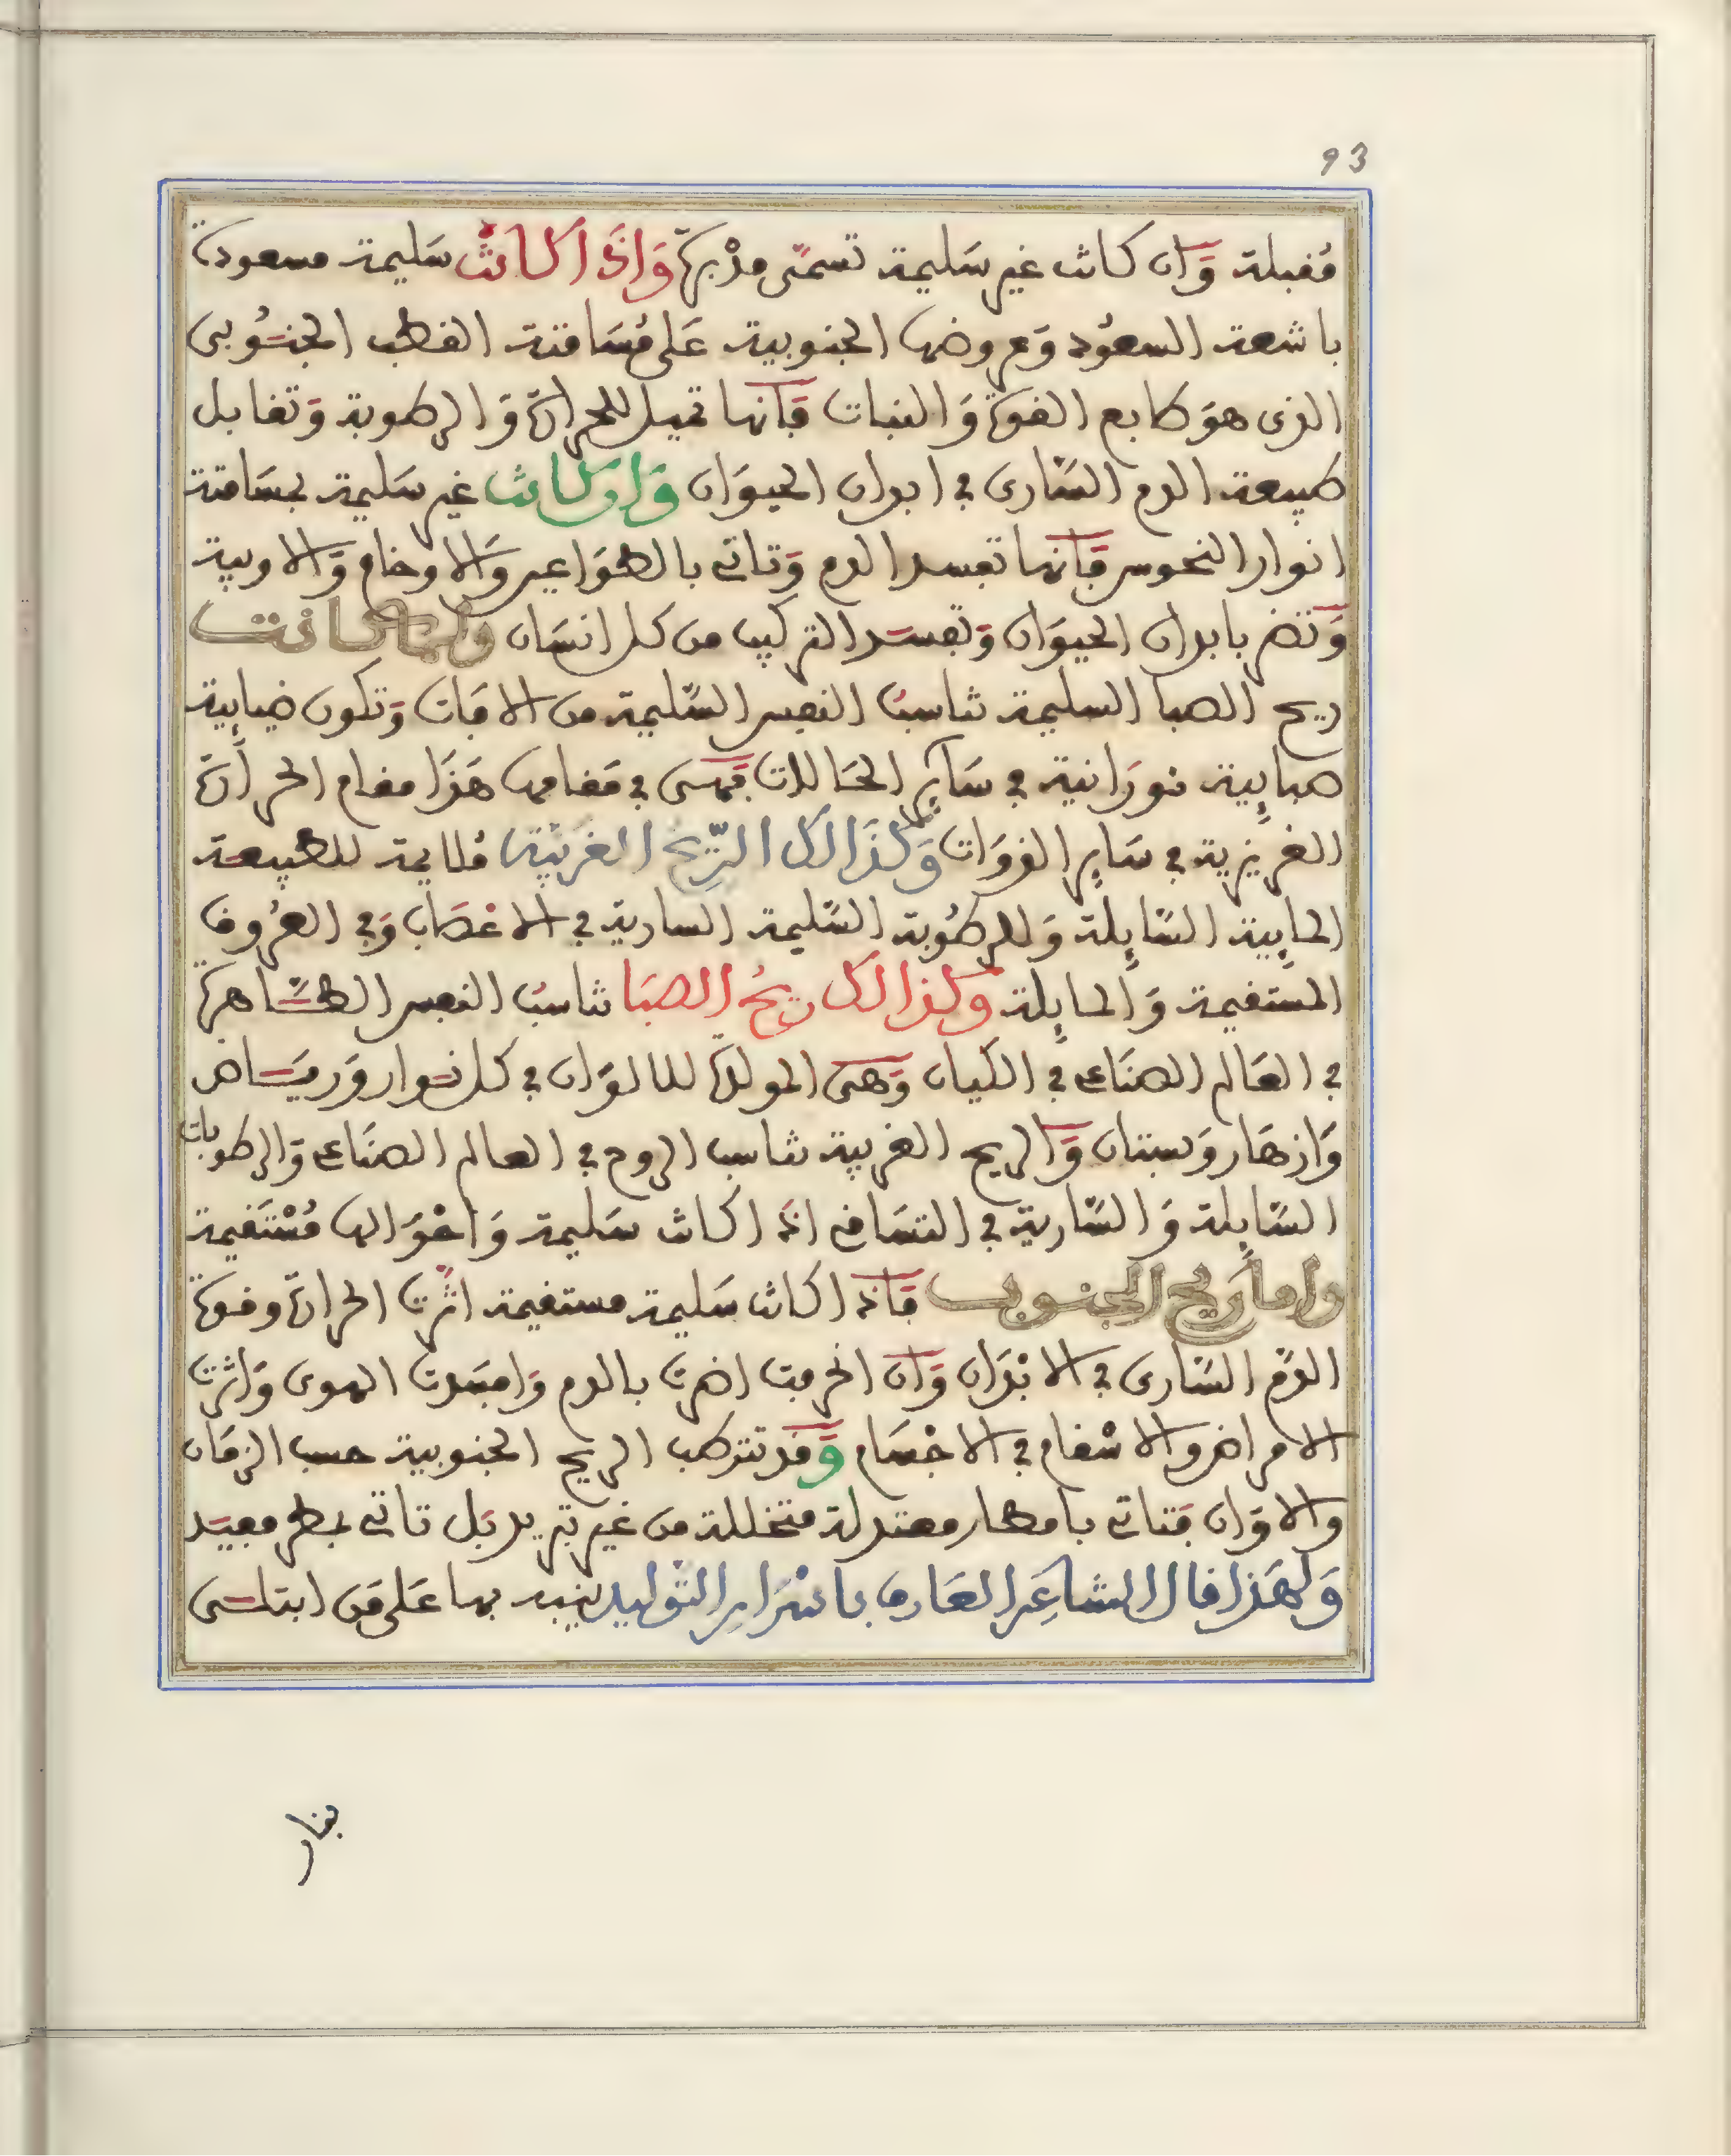 93
مُقبلة وَان كانت غير سَليمة تسمّى مدْبرة وَاذَا كانتْ سَليمة مسعودة
باشعة السعُود وَعروضها الجنوبية عَلى مُسَامتة القطب الجنُوبى
الذى هوَ طابع القوة وَالنبات فَانها تميل للحرارة وَالرطوبة وَتقابل
طبيعة الدم السّارى في ابدان الحيوَان وَان كانت غير سَليمة بمسَامتة
انوار النحوس فَانها تفسد الدم وَتاتى بالطوَاعين وَالاوخام وَالاوبية
وَتضر بابدان الحيوَان وَتفسد التركيب من كل انسَان ولما كانت
ريح الصبا السليمة تناسبُ النفس السّليمة من الافات وَتكون ضبابية
هبابِية نورَانية في سَايِر الحَالات فهى في مَقامها هَذَا مقام الحرَارة
الغريزية في سَايِر الذوَات وَكذَالك الرّيح الغَربيّة مُلايمة للطبيعة
المايِية السّايِلة وَللرطُوبة السّليمة السارية في الاعْصَاب وَفي العرُوق
المسْتقيمة وَالمايِلة وكذالك ريحُ الصبَا تناسبُ النفس الطّاهرة
في العَالم الصنَاعى في الكيان وَهى المولدة للالوَان في كل نوار وَريَاض
وَازهَار وَبستان وَالريح الغربية تناسب الروح في العالم الصنَاعى وَالرطوبات
السّايِلة وَالسّارية في التسَافى اذَا كانت سَليمة وَاحْوَالها مُسْتَقيمة
واما ريح الجنوب فَاذا كانت سَليمة مستقيمة اثّرت الحرارة وقوة
الدّم السّارى في الابْدَان وَان انحرفت اضرت بالدم وَافسَدت الهوى وَاثرت
الامراض والاسْقام في الاجْسَام وَقد تتركب الريح الجنوبية حسب الزمَان
والاوَان فتاتى بامطار معتدلة متخللة من غير تبريد بَل تاتى بمطر مفيد
وَلهَذا قال الشاعِر العَارف باسْرَارِ التوْليد ينبه بها عَلى مَن ابتلى
بنار